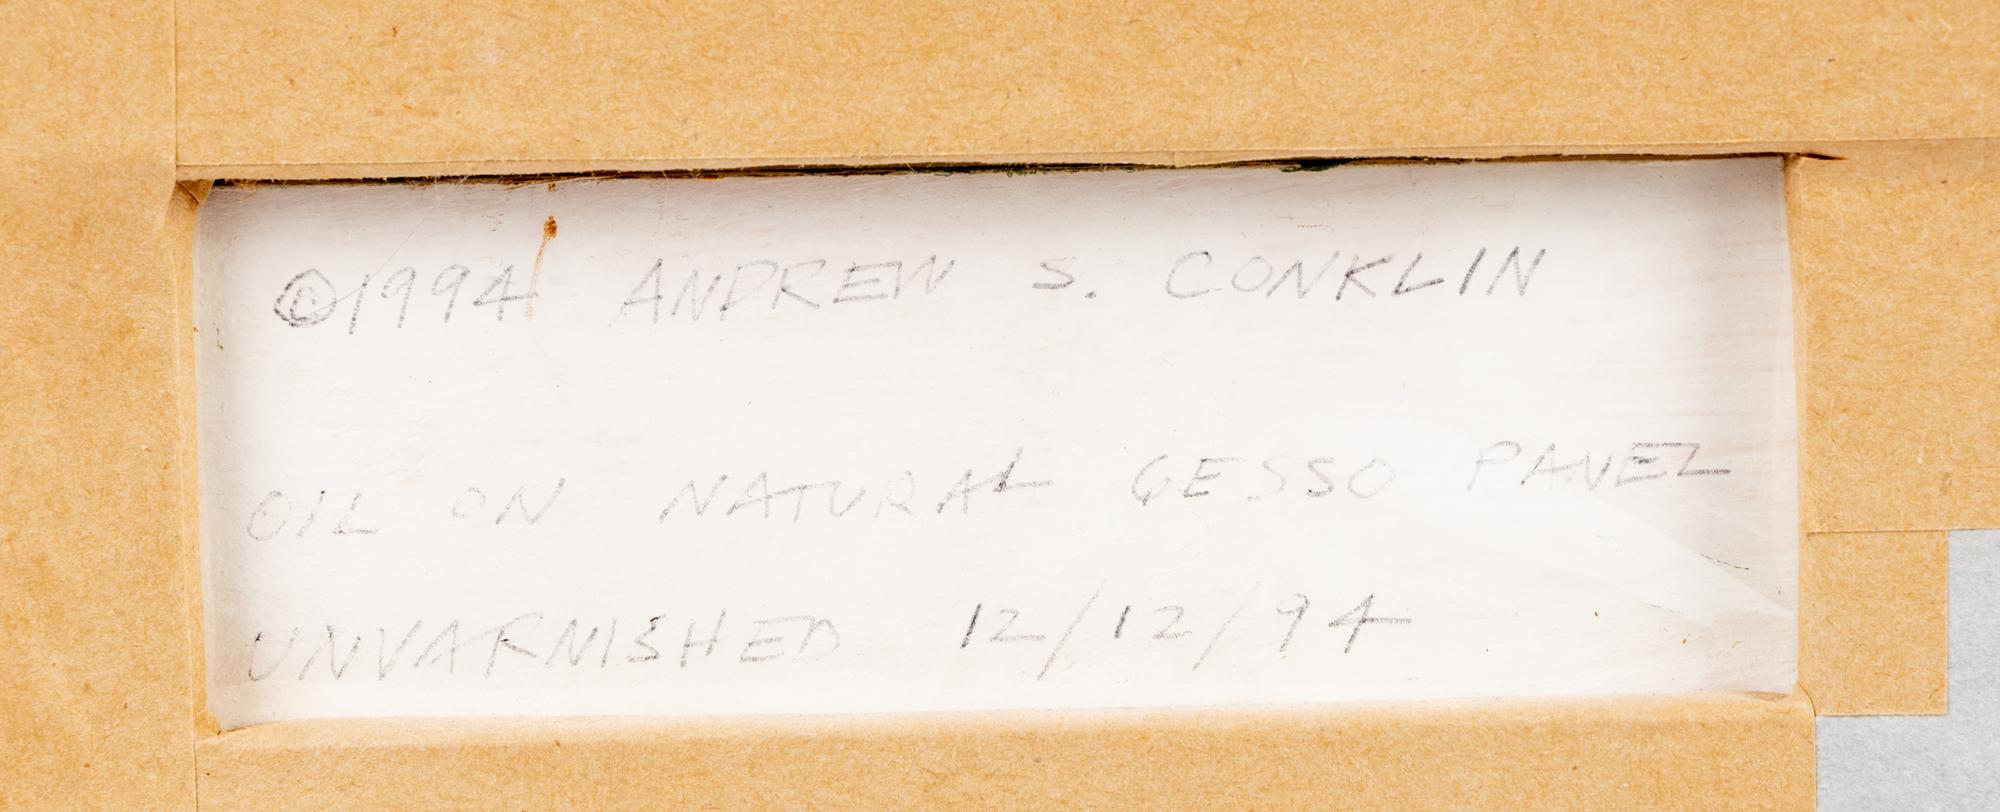 ©1994 ANDREW S. CONKLIN
OIL ON NATURAL GESSO PANEL
UNVARNISHED 12/12/94